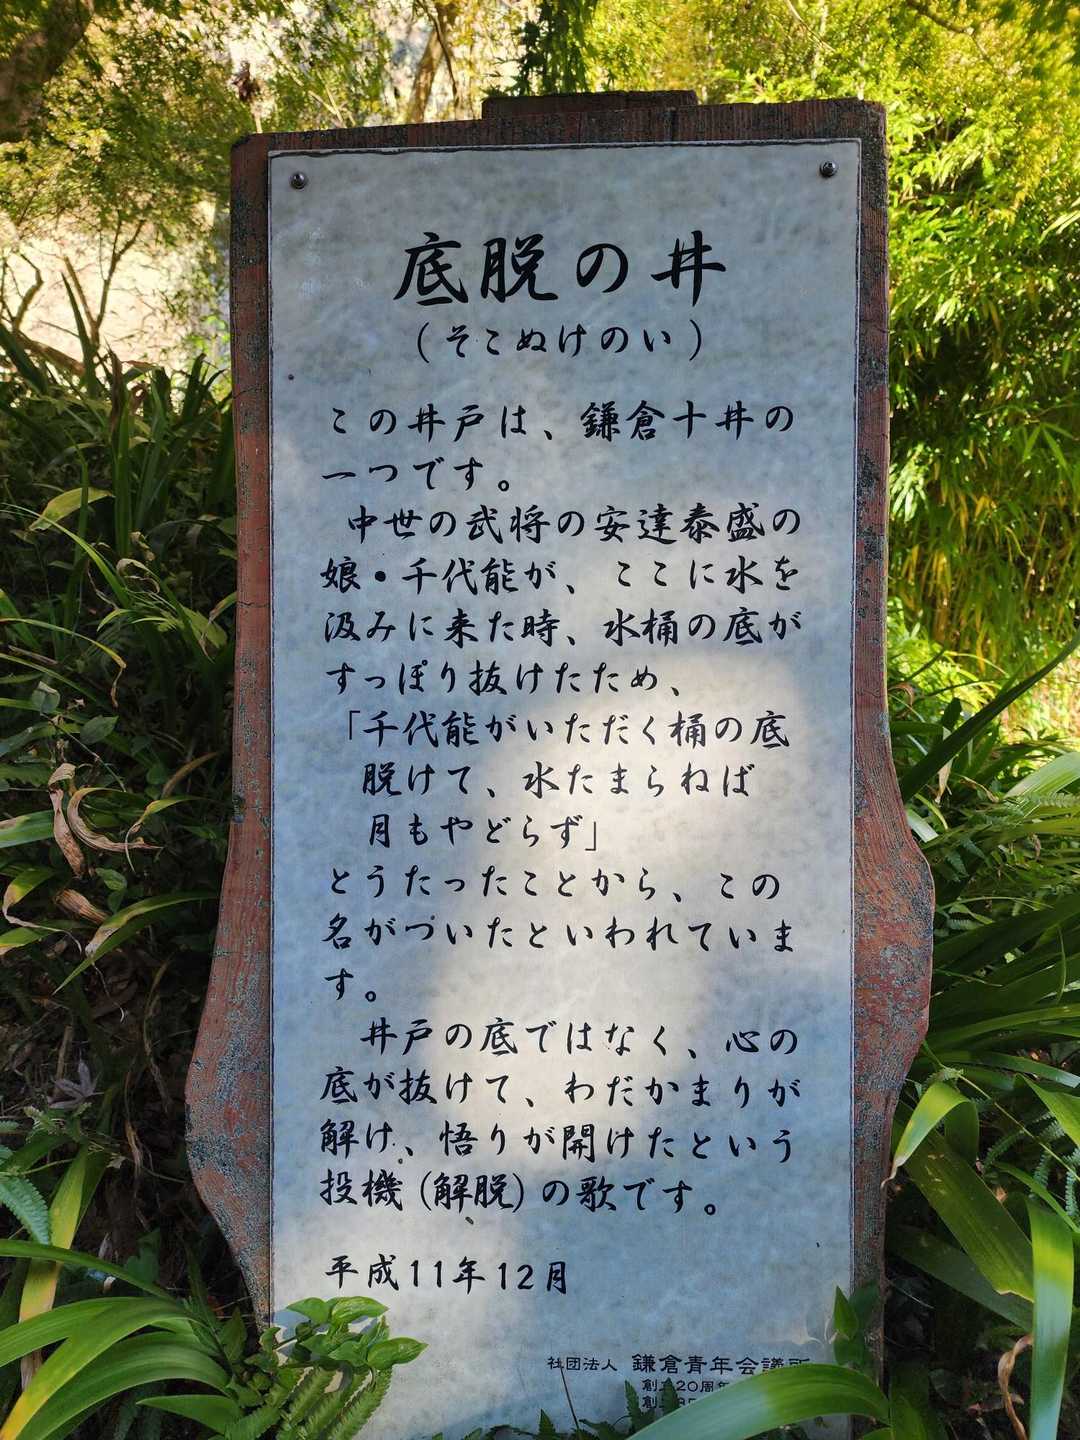 底脱の井
（そこぬけのい）
この井戸は、鎌倉十井の
一つです。
中世の武将の安達泰盛の
娘・千代能が、ここに水を
汲みに来た時、水桶の底が
すっぽり抜けたため、
「千代能がいただく桶の底
脱けて、水たまらねば
月もやどらず」
とうたったことから、この
名がついたといわれていま
す。
井戸の底ではなく、心の
底が抜けて、わだかまりが
解け、悟りが開けたという
投機（解脱）の歌です。
平成11年12月
社団法人 鎌倉青年会議所
創立20周年